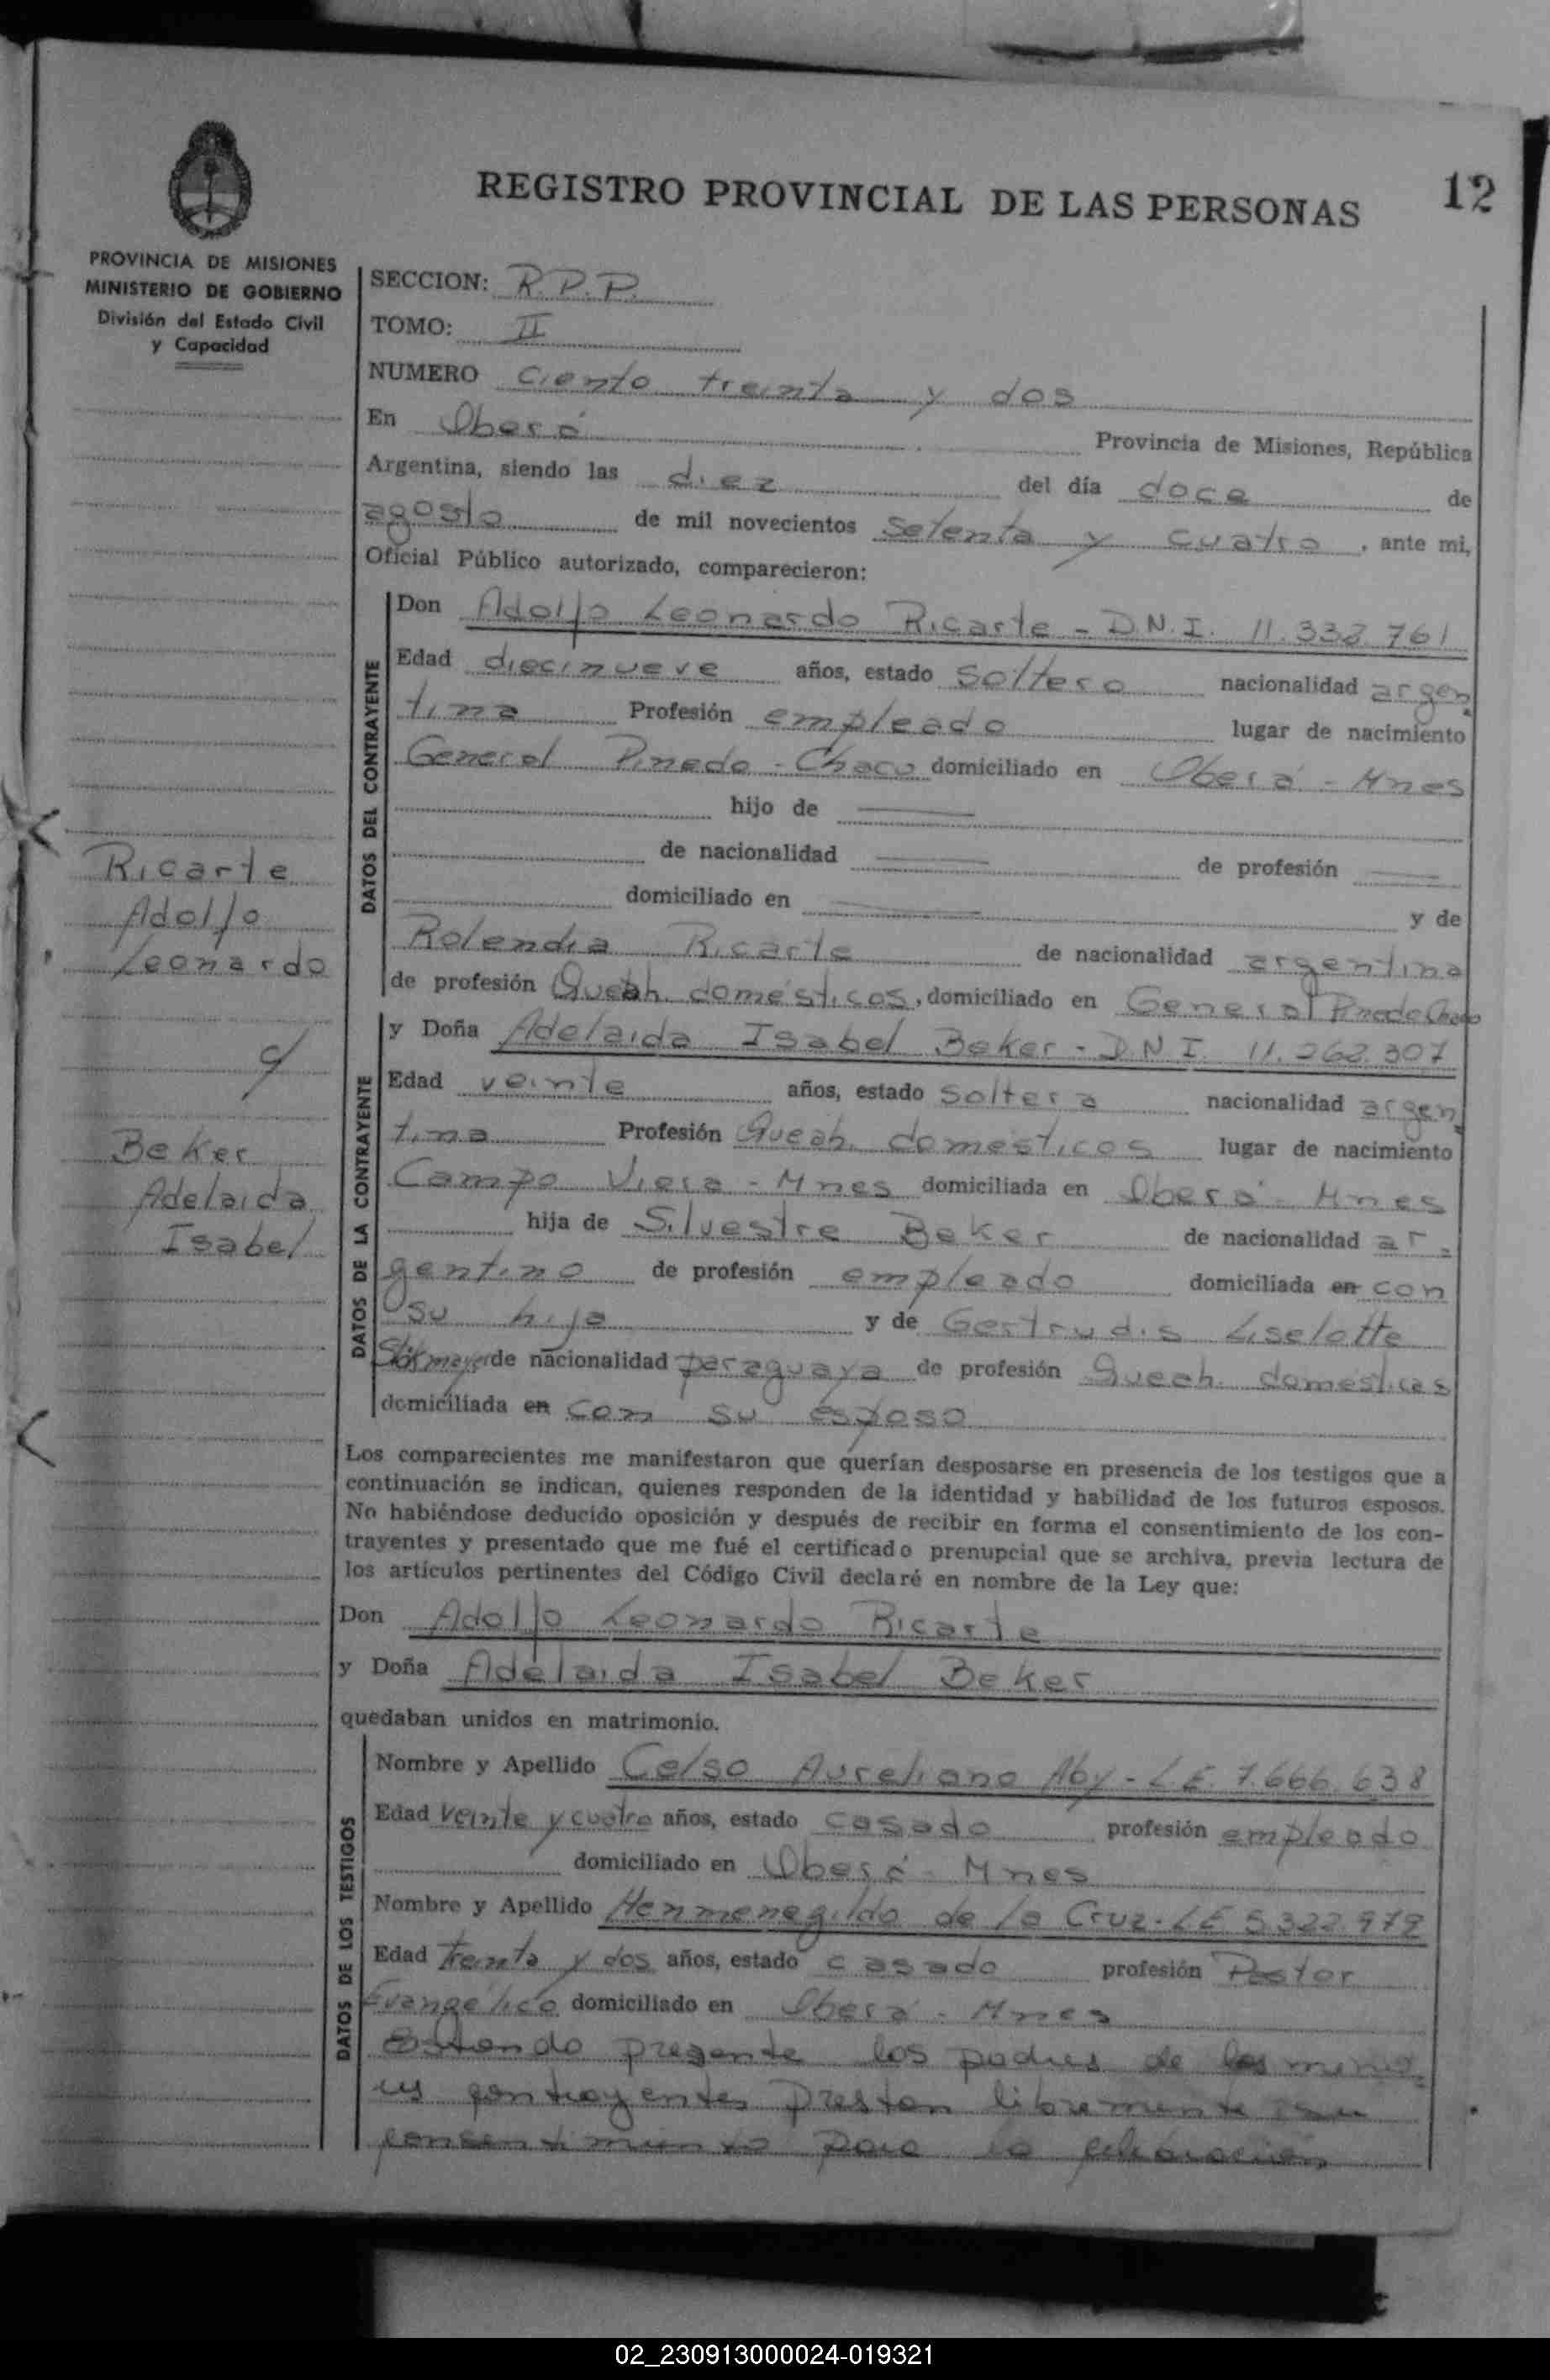 REGISTRO PROVINCIAL DE LAS PERSONAS 12
PROVINCIA DE MISIONES
MINISTERIO DE GOBIERNO
División del Estado Civil
y Capacidad
SECCION: R.P.P.
TOMO: II
NUMERO Ciento treinta y dos
En Oberá Provincia de Misiones, República
Argentina, siendo las diez del día doce de
agosto de mil novecientos setenta y cuatro, ante mi,
Oficial Público autorizado, comparecieron:
DATOS DEL CONTRAYENTE
Don Adolfo Leonardo Ricarte - D.N.I. 11.338.761
Edad diecinueve años, estado soltero nacionalidad argen
tina Profesión empleado lugar de nacimiento
General Pinedo - Chaco domiciliado en Oberá - Mnes
hijo de
de nacionalidad de profesión
domiciliado en y de
Rolendia Ricarte de nacionalidad argentina
de profesión Queah. domésticos, domiciliado en General Pinedo Chaco
Ricarte
Adolfo
Leonardo
c/
Beker
Adelaida
Isabel
DATOS DE LA CONTRAYENTE
y Doña Adelaida Isabel Beker - D.N.I. 11.262.307
Edad veinte años, estado soltera nacionalidad argen
tina Profesión Queah. domésticos lugar de nacimiento
Campo Viera - Mnes domiciliada en Oberá - Mnes
hija de Silvestre Beker de nacionalidad ar-
gentino de profesión empleado domiciliada en con
su hija y de Gertrudis Liselotte
de nacionalidad paraguaya de profesión Queah. domesticos
domiciliada en con su esposo
Los comparecientes me manifestaron que querían desposarse en presencia de los testigos que a
continuación se indican, quienes responden de la identidad y habilidad de los futuros esposos.
No habiéndose deducido oposición y después de recibir en forma el consentimiento de los con-
trayentes y presentado que me fué el certificado prenupcial que se archiva, previa lectura de
los artículos pertinentes del Código Civil declaré en nombre de la Ley que:
Don Adolfo Leonardo Ricarte
y Doña Adelaida Isabel Beker
quedaban unidos en matrimonio.
DATOS DE LOS TESTIGOS
Nombre y Apellido Celso Aureliano Aby - L.E. 7.666.638
Edad veinte y cuatro años, estado casado profesión empleado
domiciliado en Oberá - Mnes
Nombre y Apellido Henmenegildo de la Cruz - LE 5.322.979
Edad treinta y dos años, estado casado profesión Pastor
Evangélico domiciliado en Oberá - Mnes
Estando presente los padres de los meno-
res contrayentes prestan libremente su
consentimiento para la celebración
02_230913000024-019321